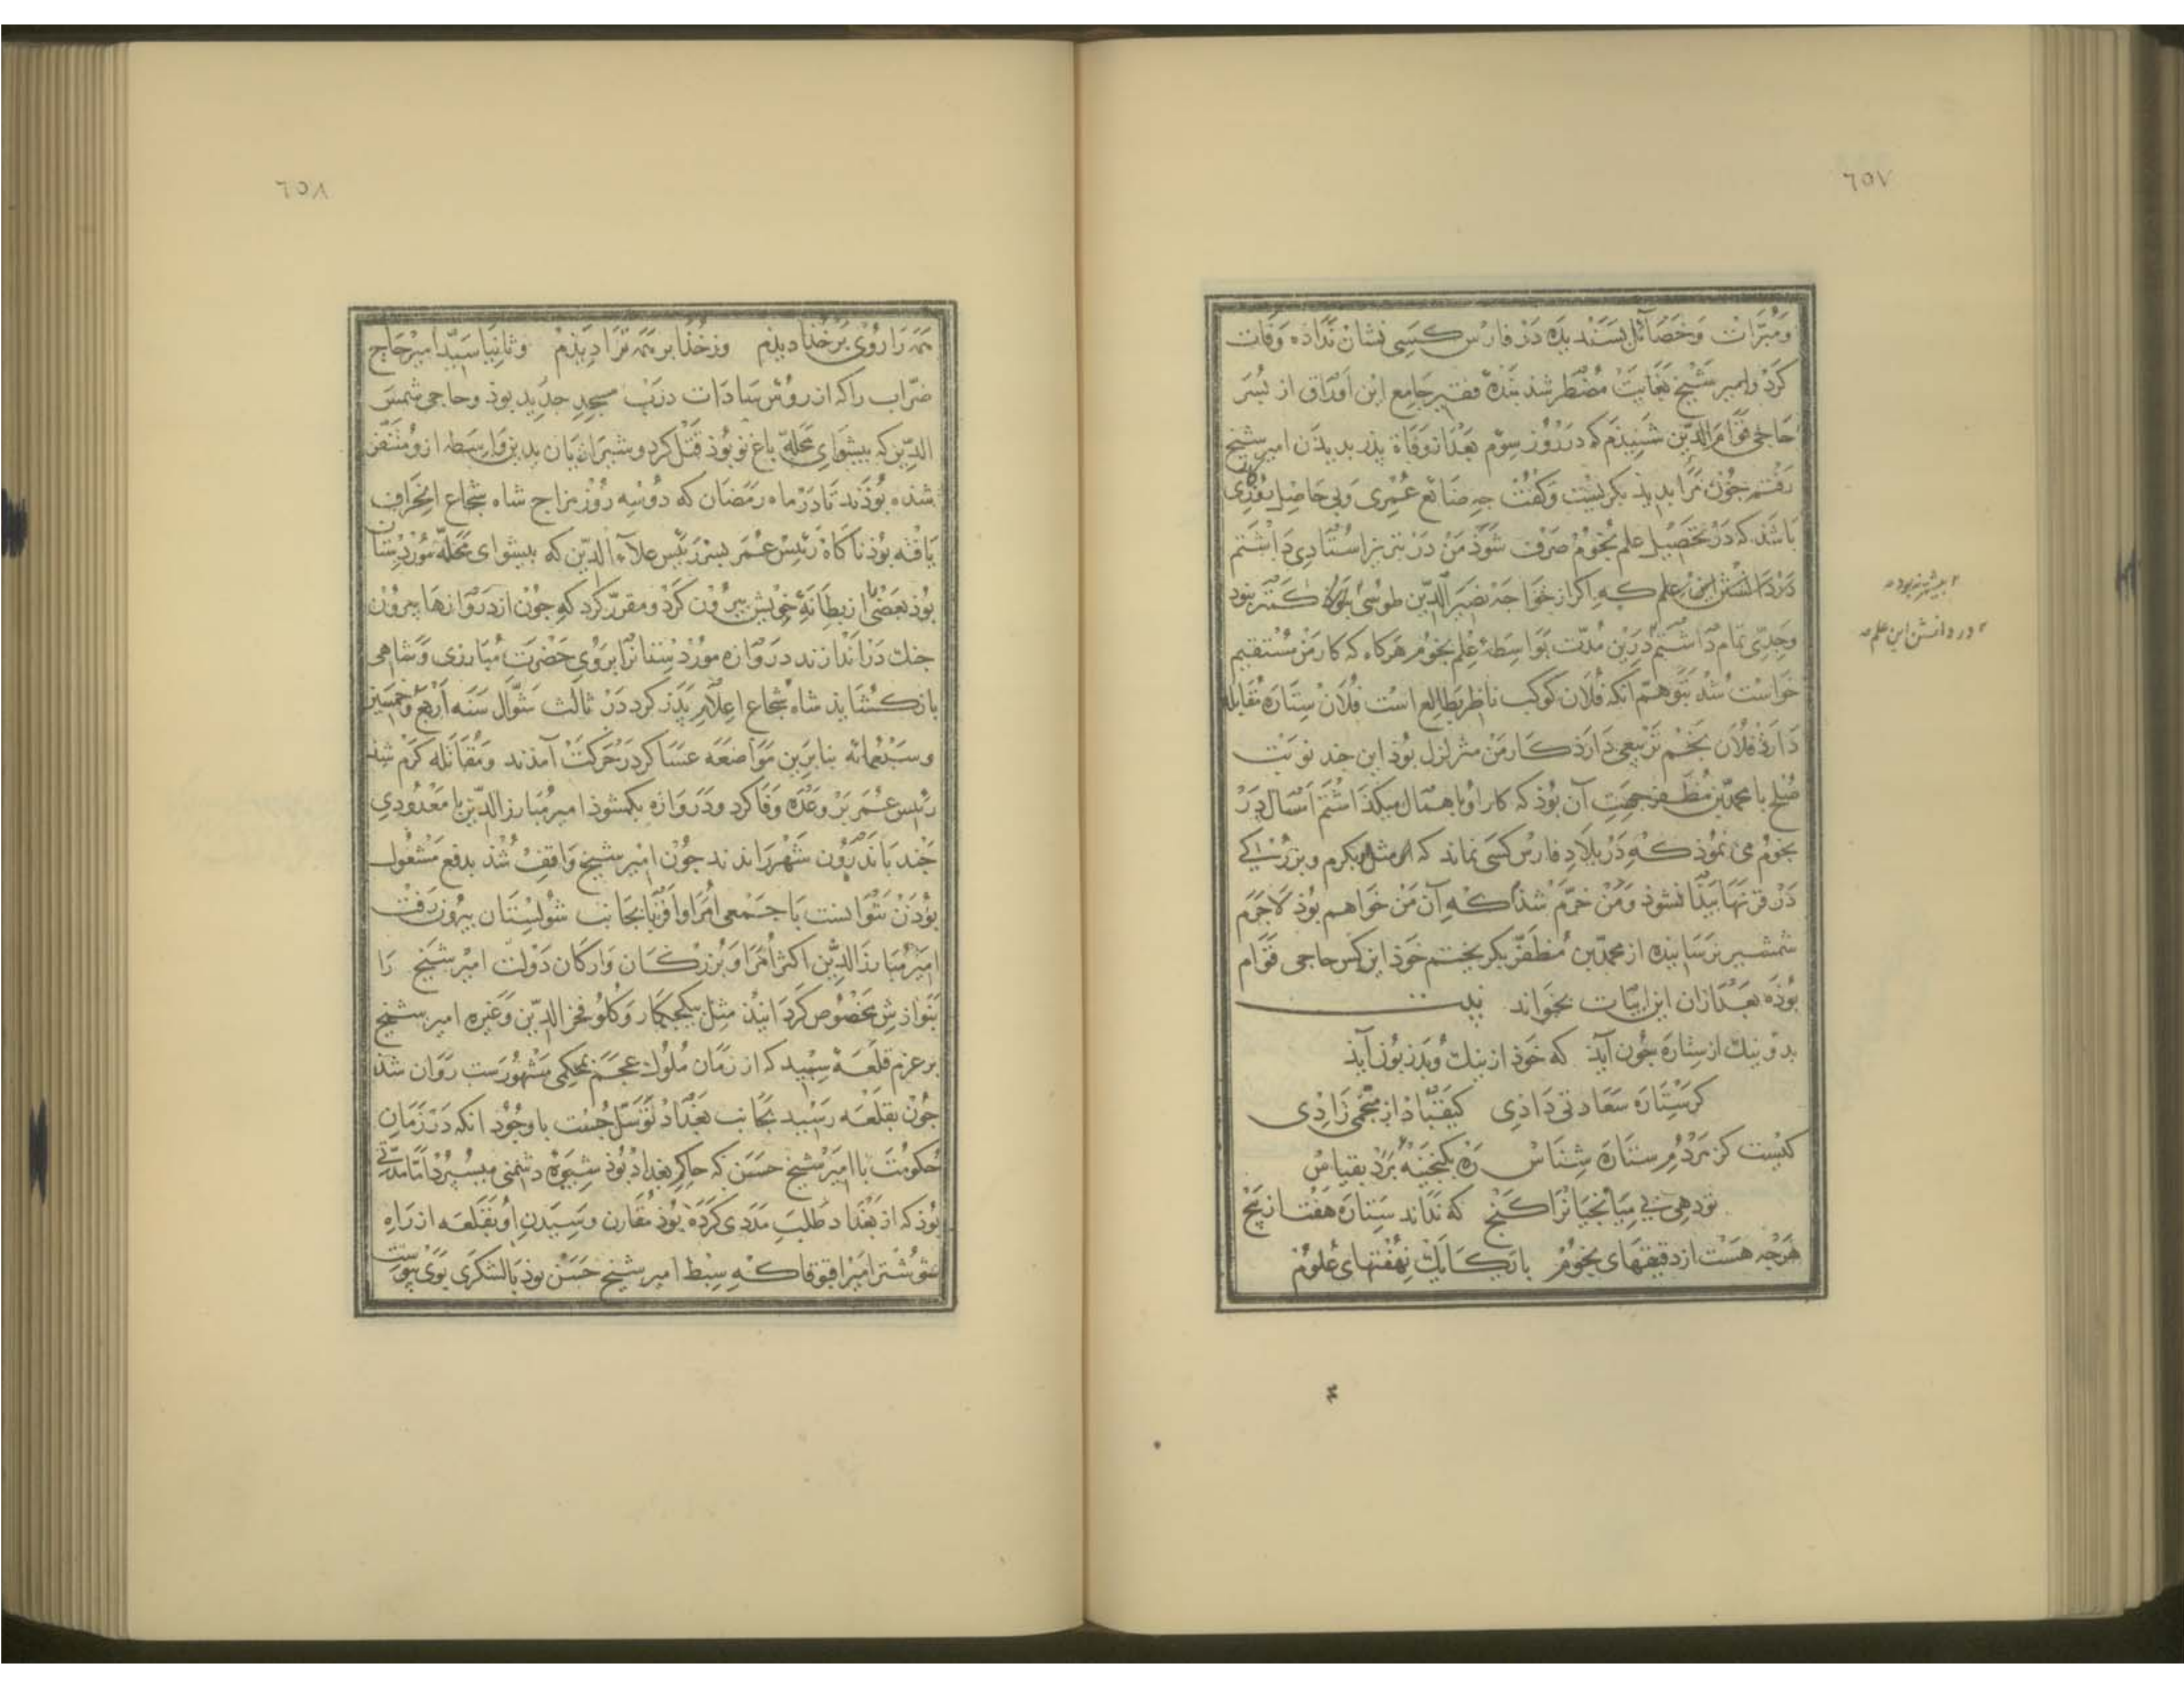 ٦٥٧
و مبرّات و خصائل پسندیده در فارس کسی نشان نداده وفات
کرد و امیر شیخ بغایت مضطر شد بنده فقیر جامع این اوراق از پسر
حاجی قوام الدّین شنیذم که در روز سوم بعد از وفاة پذر بدیذن امیر شیخ
رفتم جون مرا بدیذ بکریست و کفت جه ضائع عمری و بی حاصل روزکاری
باشذ که در تحصیل علم نجوم صرف شوذ من در تبریز استادی داشتم
در دانستن این علم که اکر از خواجه نصیر الدّین طوسی کمتر نبوذ
بیشتر نبود
در دانستن این علم
و جدّی تمام داشتم درین مدّت بواسطهٔ علم نجوم هرکاه که کار من مستقیم
خواست شد بتوهّم آنکه فلان کوکب ناظر بطالع است فلان ستاره مقابله
دارذ فلان نجم تربیعی دارذ کار من متزلزل بوذ این جند نوبت
صلح با محمد بن مظفر جهت آن بوذ که کار او باهمال میکذاشتم امسال در
نجوم می نموذ که در بلاد فارس کسی نماند که از مثل بکرم و بزرکی
در قرنها بیذا نشوذ و من خرّم شذم که آن من خواهم بوذ لاجرم
شمشیر نرسانیده از محمد بن مظفّر بکریختم خوذ این کس حاجی قوام
بوذه بعد ازان این ابیات بخواند بیت
بد و نیک از ستاره جون آیذ که خوذ از نیک و بد زبون آیذ
کر ستاره سعادتی داذی کیقباذ از منجّمی زاذی
کیست کز مردم ستاره شناس ره بکنجینه برد بقیاس
تو دهی بی میانجیانرا کنج که نداند ستاره هفت از پنج
هرجه هست از دقیقهای نجوم با یکایک نهفتهای علوم
٦٥٨
همه را روی بر خذا دیذم وز خذا بر همه ترا دیذم و ثانیا سیّد امیر حاج
ضرّاب را که از روس سادات درب مسجد جدید بوذ و حاجی شمس
الدّین که پیشوای محلّه باغ نو بوذ قتل کرد و شیرازیان بدین واسطه ازو متنفّر
شذه بوذند تا در ماه رمضان که دو سه روز مزاج شاه شجاع انحراف
یافته بوذ ناکاه رئیس عمر بسر رئیس علاء الدّین که بیشوای محلّه موردستان
بوذ بعضی از بطانهٔ خویش بیرون کرد و مقرّر کرد که جون از دروازها بیرون
جنک در اندازند دروازه موردستانرا بروی حضرت مبارزی و شاهی
بازکشایذ شاه شجاع اعلام بذر کرد در ثالث شوّال سنه اربع و خمسین
و سبعمائه بنا برین مواضعه عساکر در حرکت آمذند و مقاتله کرم شد
رئیس عمر بر وعده وفا کرد و دروازه بکشوذ امیر مبارز الدّین با معدودی
جند باندرون شهر راندند جون امیر شیخ واقف شذ بدفع مشغول
بوذن نتوانست با جمعی امرا و اقربا بجانب شولستان بیرون رفت
امیر مبارز الدّین اکثر امرا و بزرکان و ارکان دولت امیر شیخ را
بنوازش مخصوص کردانیذ مثل بیکجکار و کلو فخر الدّین و غیره امیر شیخ
بر عزم قلعه سپید که از زمان ملوک عجم بمحکمی مشهورست روان شذ
جون بقلعه رسید بجانب بغداد توسّل جست با وجود انکه در زمان
حکومت با امیر شیخ حسن که حاکم بغداد بوذ شیوه دشمنی میسپرد امّا مدّتی
بوذ که از بغداد طلب مددی کرده بوذ مقارن رسیدن او بقلعه از راه
شوشتر امیر اقبوقا که سبط امیر شیخ حسن بوذ با لشکری بوی پیوست